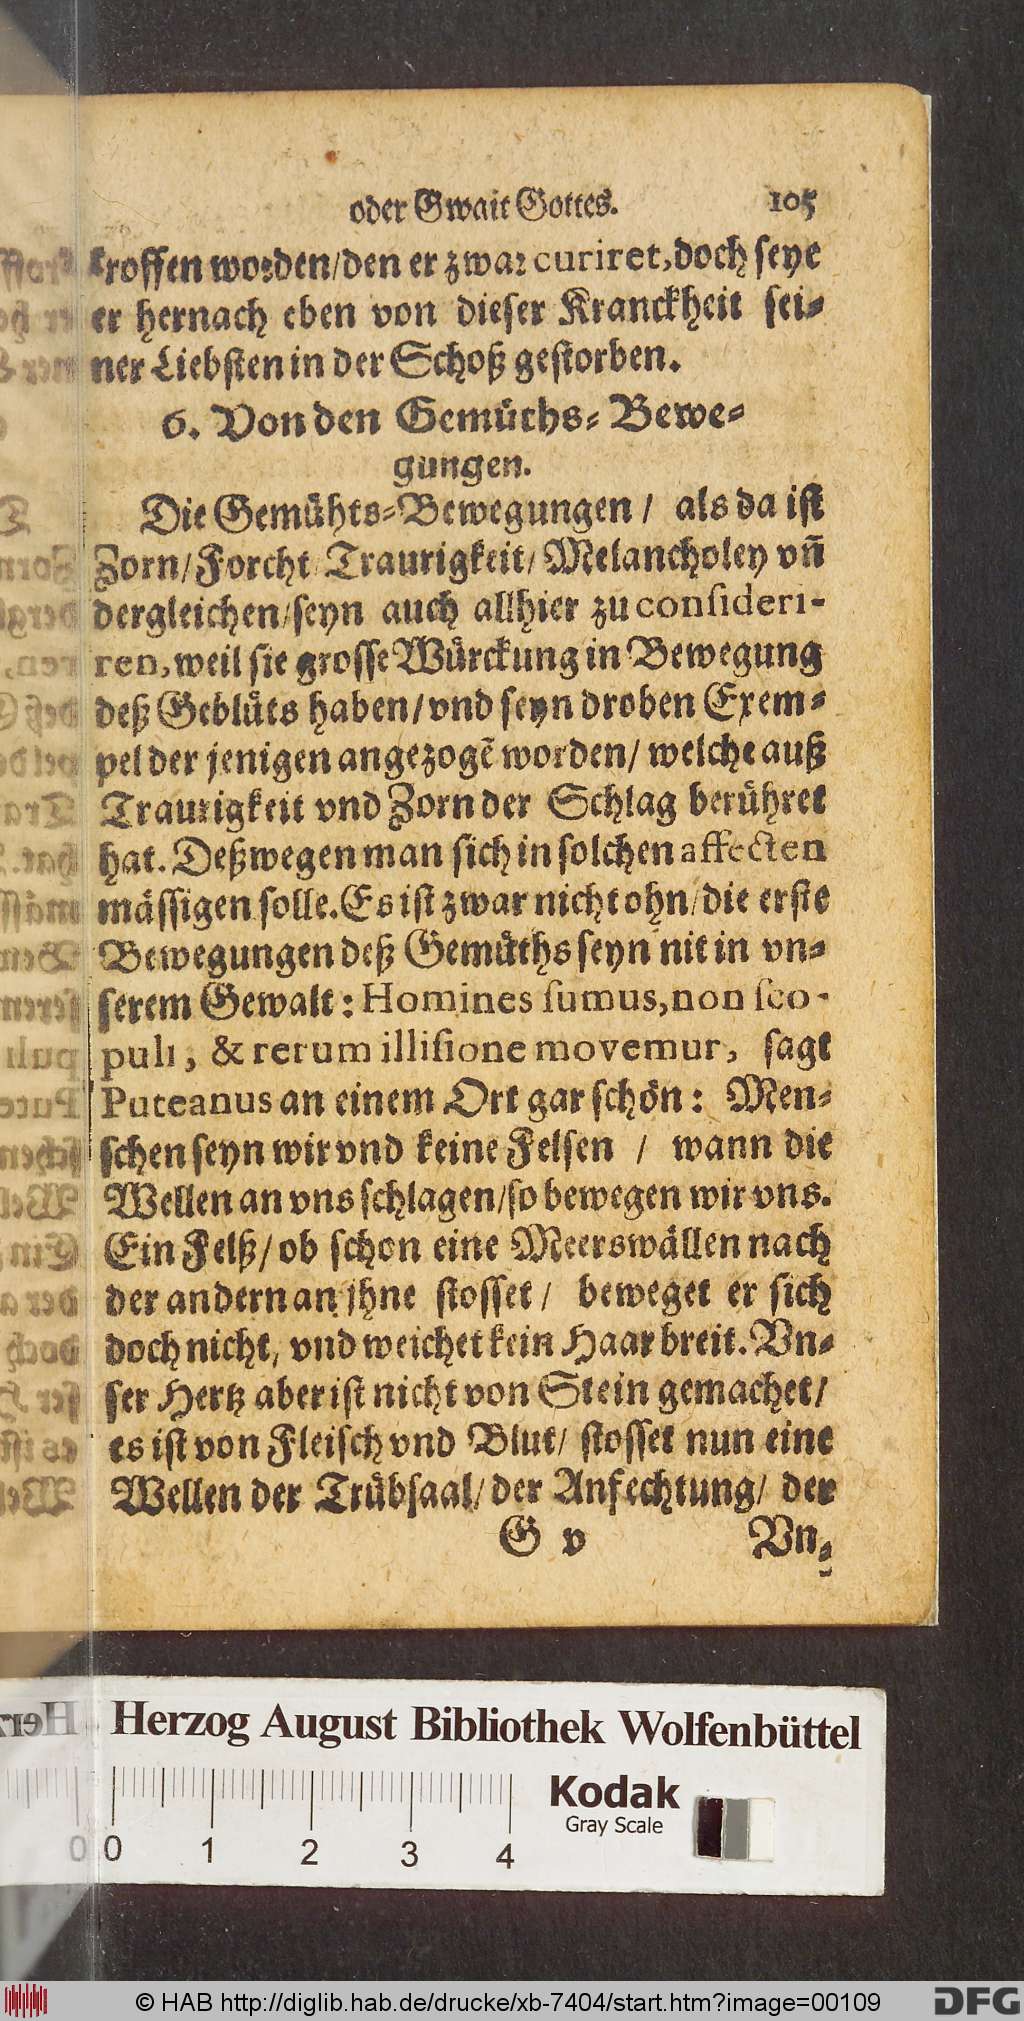 oder Gwalt Gottes. 105
troffen worden/den er zwar curiret, doch seye
er hernach eben von dieser Kranckheit sei-
ner Liebsten in der Schoß gestorben.
6. Von den Gemüths-Bewe-
gungen.
Die Gemühts-Bewegungen / als da ist
Zorn/Forcht Traurigkeit/ Melancholey vn̄
dergleichen/seyn auch allhier zu consideri-
ren, weil sie grosse Würckung in Bewegung
deß Geblüts haben/vnd seyn droben Exem-
pel der jenigen angezogē worden/ welche auß
Traurigkeit vnd Zorn der Schlag berühret
hat. Deßwegen man sich in solchen affecten
mässigen solle. Es ist zwar nicht ohn/die erste
Bewegungen deß Gemüths seyn nit in vn-
serem Gewalt: Homines sumus, non sco-
puli, & rerum illisione movemur, sagt
Puteanus an einem Ort gar schön: Men-
schen seyn wir vnd keine Felsen / wann die
Wellen an vns schlagen/so bewegen wir vns.
Ein Felß/ ob schon eine Meerswällen nach
der andern an jhne stosset / beweget er sich
doch nicht, vnd weichet kein Haar breit. Vn-
ser Hertz aber ist nicht von Stein gemachet/
es ist von Fleisch vnd Blut/ stosset nun eine
Wellen der Trübsaal/ der Anfechtung/ der
G v Vn-
Herzog August Bibliothek Wolfenbüttel
Kodak
Gray Scale
0 1 2 3 4
© HAB http://diglib.hab.de/drucke/xb-7404/start.htm?image=00109
DFG